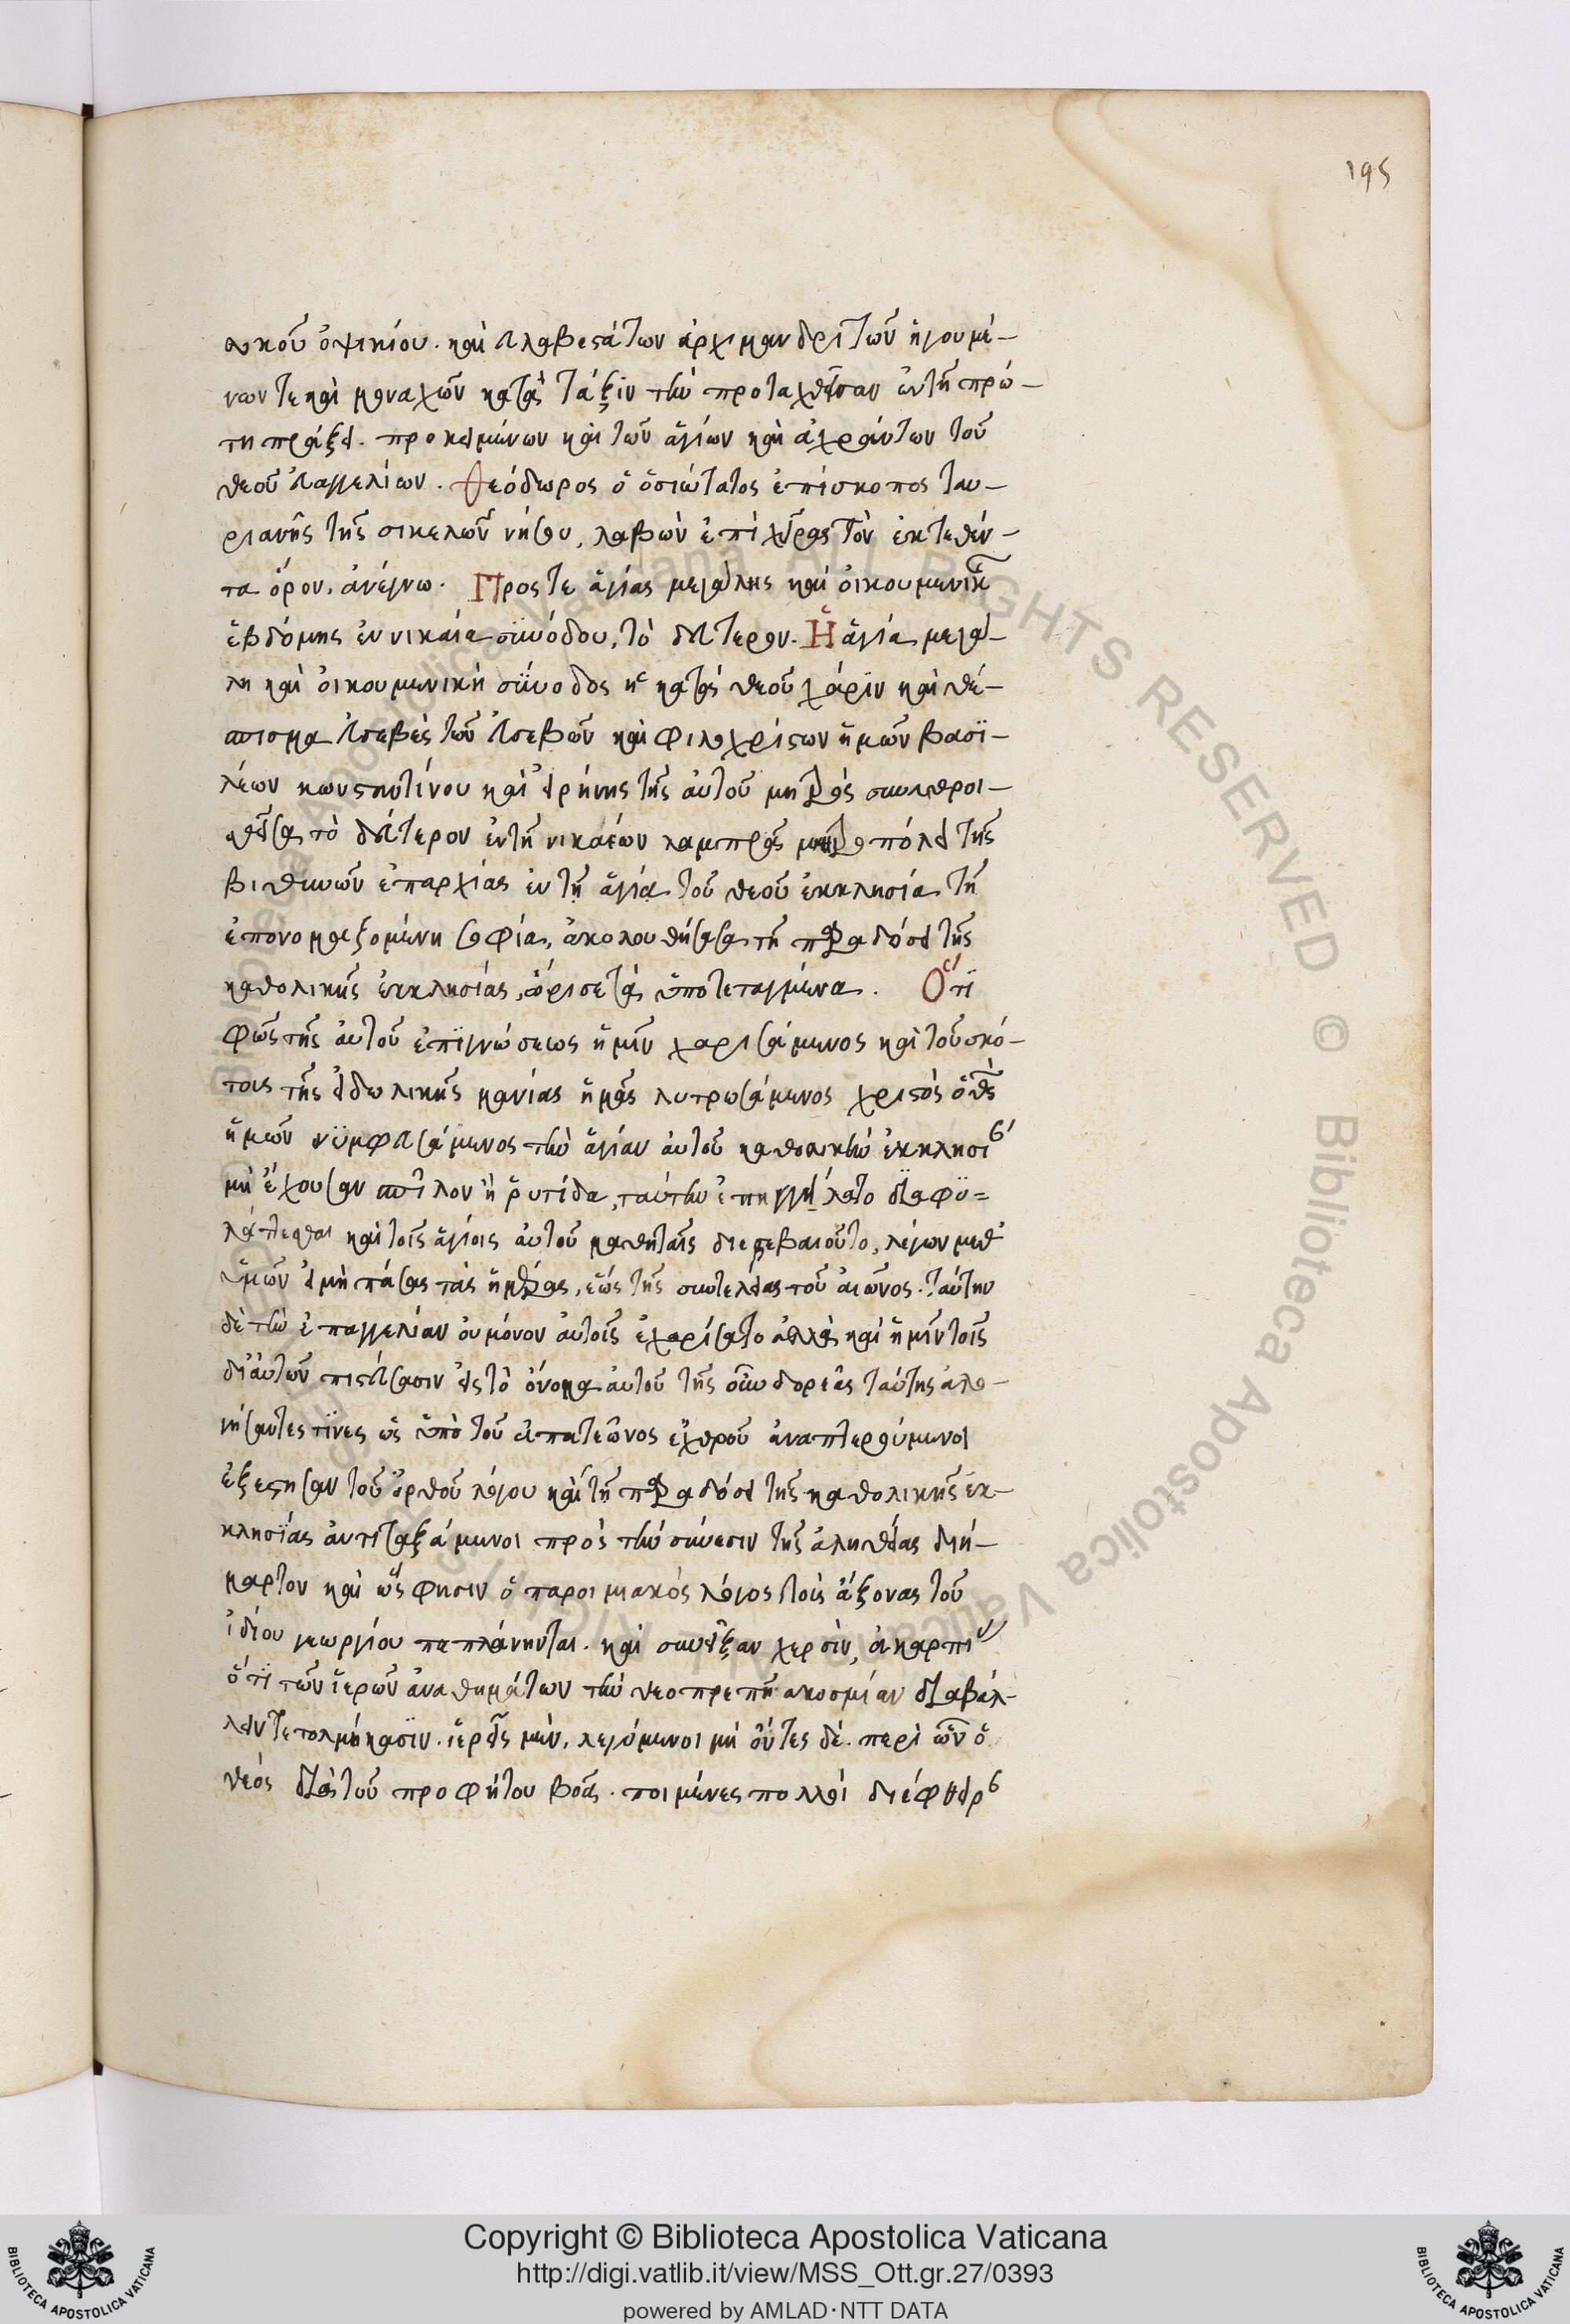 195
λικοῦ ὀψικίου. καὶ εὐλαβεστάτων ἀρχιμανδριτῶν ἡγουμέ-
νων τε καὶ μοναχῶν κατὰ τάξιν τὴν προταχθεῖσαν ἐν τῇ πρώ-
τη πράξει. προκειμένων καὶ τῶν ἁγίων καὶ ἀχράντων τοῦ
θεοῦ εὐαγγελίων. Θεόδωρος ὁ ὁσιώτατος ἐπίσκοπος ταυ-
ριανῆς τῆς σικελῶν νήσου, λαβὼν ἐπὶ χεῖρας τὸν ἐκτεθέν-
τα ὅρον, ἀνέγνω. Προς τε ἁγίας μεγάλης καὶ οἰκουμενικῆς
ἑβδόμης ἐν νικαία συνόδου, τὸ δεύτερον. Ἡ ἁγία μεγά-
λη καὶ οἰκουμενικὴ σύνοδος ἡ κατὰ θεοῦ χάριν καὶ θέ-
σπισμα εὐσεβὲς τῶν εὐσεβῶν καὶ φιλοχρίστων ἡμῶν βασι-
λέων κωνσταντίνου καὶ εἰρήνης τῆς αὐτοῦ μητρὸς συναθροι-
σθεῖσα τὸ δεύτερον ἐν τῇ νικαέων λαμπρᾶ μητροπόλει τῆς
βιθυνῶν ἐπαρχίας ἐν τῇ ἁγία τοῦ θεοῦ ἐκκλησία τῇ
ἐπονομαζομένη σοφία, ἀκολουθήσασα τῇ παραδόσει τῆς
καθολικῆς ἐκκλησίας, ὥρισε τὰ ὑποτεταγμένα. Ὅτι
φῶς τῆς αὐτοῦ ἐπιγνώσεως ἡμῖν χαρισάμενος καὶ τοῦ σκό-
τους τῆς εἰδωλικῆς μανίας ἡμᾶς λυτρωσάμενος χριστὸς ὁ θεὸς
ἡμῶν νυμφευσάμενος τὴν ἁγίαν αὐτοῦ καθολικὴν ἐκκλησίαν
μὴ ἔχουσαν σπῖλον ἢ ῥυτίδα, ταύτην ἐπηγγείλατο διαφυ=
λάττεσθαι καὶ τοῖς ἁγίοις αὐτοῦ μαθηταῖς διεβεβαιοῦτο, λέγων μεθ'
ὑμῶν εἰμὴ πάσας τὰς ἡμέρας, ἕως τῆς συντελείας τοῦ αἰῶνος. ταύτην
δὲ τὴν ἐπαγγελίαν οὐ μόνον αὐτοῖς ἐχαρίσατο ἀλλὰ καὶ ἡμῖν τοῖς
δι' αὐτῶν πιστεύσασιν εἰς τὸ ὄνομα αὐτοῦ τῆς οὖν δορεᾶς ταύτης ἀλο-
γήσαντες τινες ὡς ὑπὸ τοῦ ἀπατεῶνος ἐχθροῦ ἀναπτερούμενοι
ἐξέστησαν τοῦ ὀρθοῦ λόγου καὶ τῇ παραδόσει τῆς καθολικῆς ἐκ-
κλησίας ἀντιταξάμενοι πρὸς τὴν σύνεσιν τῆς ἀληθείας διή-
μαρτον καὶ ὥς φησιν ὁ παροιμιακὸς λόγος τοὺς ἄξονας τοῦ
ἰδίου γεωργίου πεπλάνηνται. καὶ συνῆξαν χερσὶν, ἀκαρπίαν
ὅτι τῶν ἱερῶν ἀναθημάτων τὴν θεοπρεπῆ ακοσμίαν διαβάλ-
λειν τετολμήκασιν. ἱερεῖς μὲν, λεγόμενοι μὴ ὄντες δέ. περὶ ὧν ὁ
θεὸς διὰ τοῦ προφήτου βοᾶ. ποιμένες πολλοὶ διέφθειραν
Copyright © Biblioteca Apostolica Vaticana
http://digi.vatlib.it/view/MSS_Ott.gr.27/0393
powered by AMLAD·NTT DATA